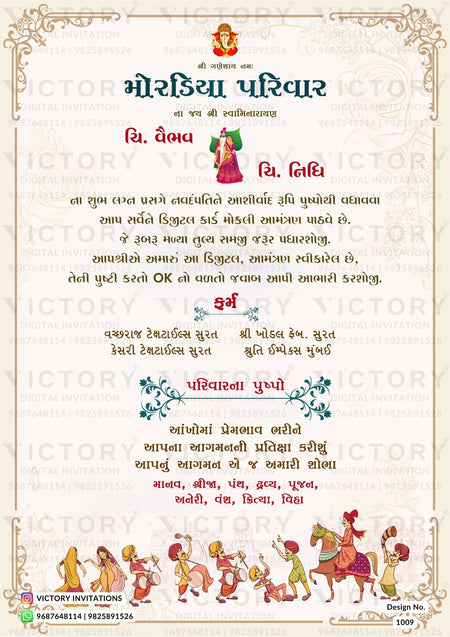 શ્રી ગણેશાય નમઃ
મોરડિયા પરિવાર
ના જય શ્રી સ્વામિનારાયણ
ચિ. વૈભવ
ચિ. નિધિ
ના શુભ લગ્ન પ્રસગે નવદંપતિને આશીર્વાદ રૂપિ પુષ્પોથી વધાવવા
આપ સર્વેને ડિજીટલ કાર્ડ મોકલી આમંત્રણ પાઠવે છે.
જે રૂબરૂ મળ્યા તુલ્ય સમજી જરૂર પધારશોજી.
આપશ્રીએ અમારું આ ડિજીટલ, આમંત્રણ સ્વીકારેલ છે,
તેની પુષ્ટી કરતો OK નો વળતો જવાબ આપી આભારી કરશોજી.
ફર્મ
વચ્છરાજ ટેક્ષટાઈલ્સ સુરત શ્રી ખોડલ ફેબ. સુરત
કેસરી ટેક્ષટાઈલ્સ સુરત શ્રુતિ ઈમ્પેક્સ મુંબઈ
પરિવારના પુષ્પો
આંખોમાં પ્રેમભાવ ભરીને
આપના આગમનની પ્રતિક્ષા કરીશું
આપનું આગમન એ જ અમારી શોભા
માનવ, શ્રીજા, પંથ, દ્રવ્ય, પૂજન,
અનેરી, વંશ, ક્રિત્યા, વિહા
VICTORY INVITATIONS
9687648114 | 9825891526
Design No.
1009
VICTORY
DIGITAL INVITATION
9687648114 | 9825891526